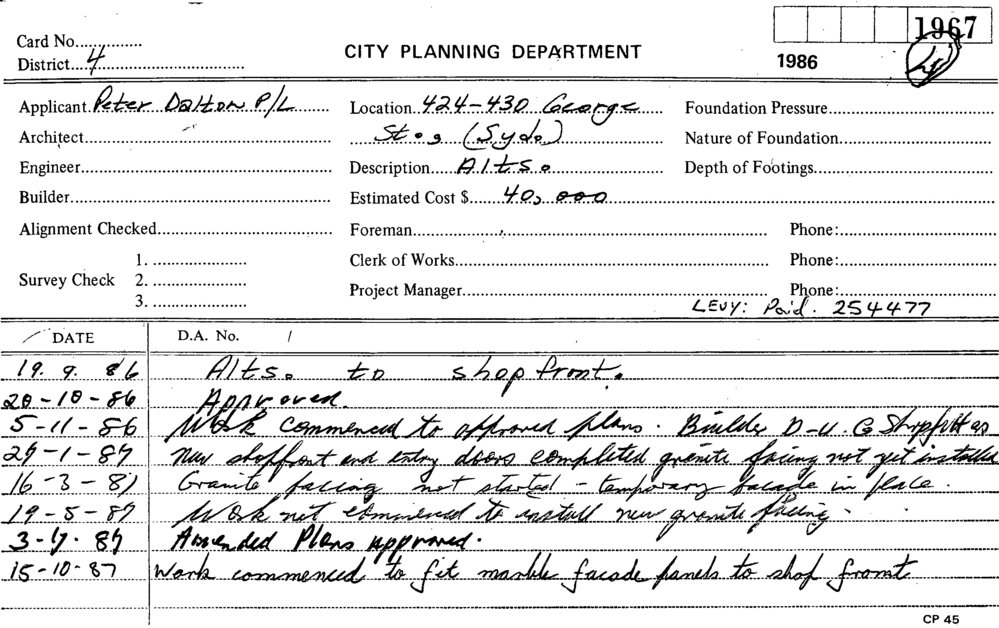 1967
Card No...............
CITY PLANNING DEPARTMENT
1986
District...4
Applicant. Peter Dalton P/L
Location. 424-430 George
Foundation Pressure
Architect
Sts, (Syd.)
Nature of Foundation
Engineer
Description. Alts.
Depth of Footings
Builder
Estimated Cost $ 40,000
Alignment Checked
Foreman
Phone:
1.
Clerk of Works
Phone:
Survey Check 2.
Project Manager
Phone:
3.
LEVY: Paid. 254477
DATE
D.A. No. /
19. 9. 86 Alts. to shop front.
20-10-86 Approved.
5-11-86 Work commenced to approved plans. Builder D-U. Co
29-1-87 New shopfront and entry doors completed granite facing not yet installed
16-3-87 Granite facing not started - temporary facade in place.
19-5-87 Work not commenced to install new granite facing.
3-7-87 Amended Plans approved.
15-10-87 Work commenced to fit marble facade panels to shop front
CP 45